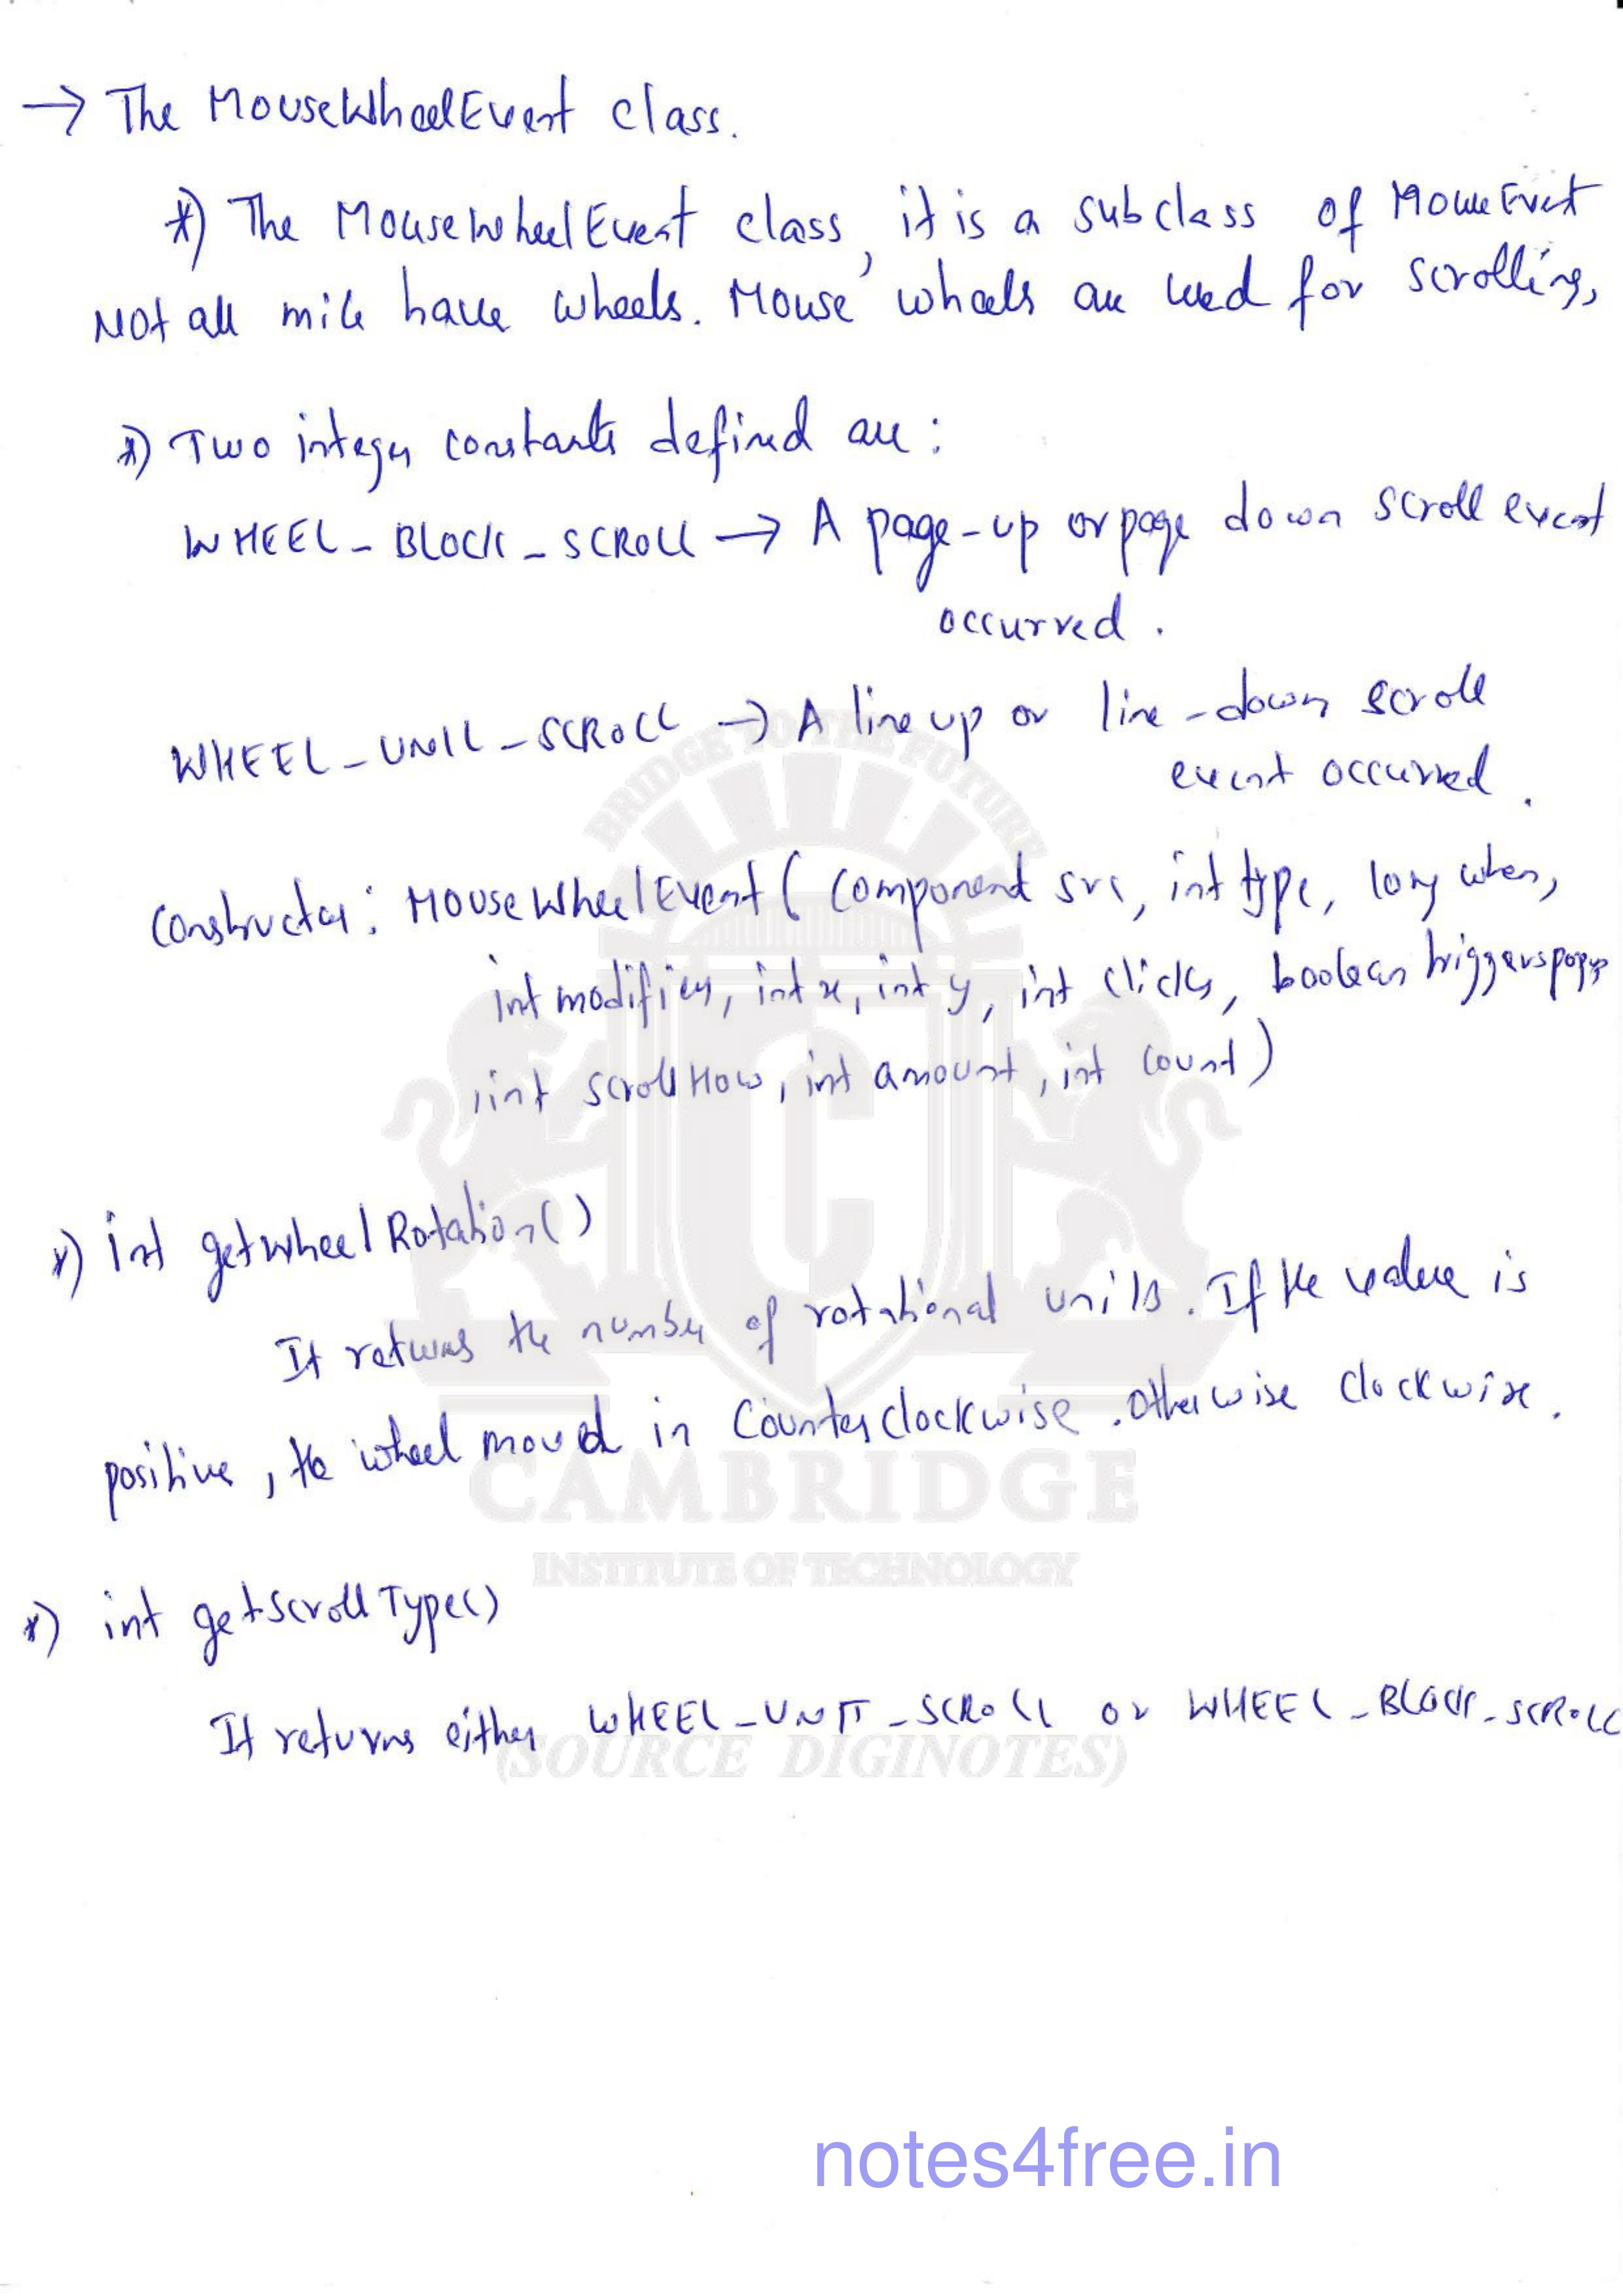 → The MouseWheelEvent class.
*) The MouseWheelEvent class, it is a subclass of MouseEvent
Not all mice have wheels. Mouse wheels are used for scrolling,
*) Two integer constants defined are:
WHEEL_BLOCK_SCROLL → A page-up or page down scroll event
occurred.
WHEEL_UNIT_SCROLL → A line up or line-down scroll
event occurred.
BRIDGE TO THE FUTURE
Constructor: MouseWheelEvent(Component src, int type, long when,
int modifiers, int x, int y, int clicks, boolean triggerspopup
, int scrollHow, int amount, int count)
C
*) int getWheelRotation()
It returns the number of rotational units. If the value is
positive, the wheel moved in Counterclockwise. Otherwise clockwise.
CAMBRIDGE
INSTITUTE OF TECHNOLOGY
*) int getScrollType()
It returns either WHEEL_UNIT_SCROLL or WHEEL_BLOCK_SCROLL
(SOURCE DIGINOTES)
notes4free.in